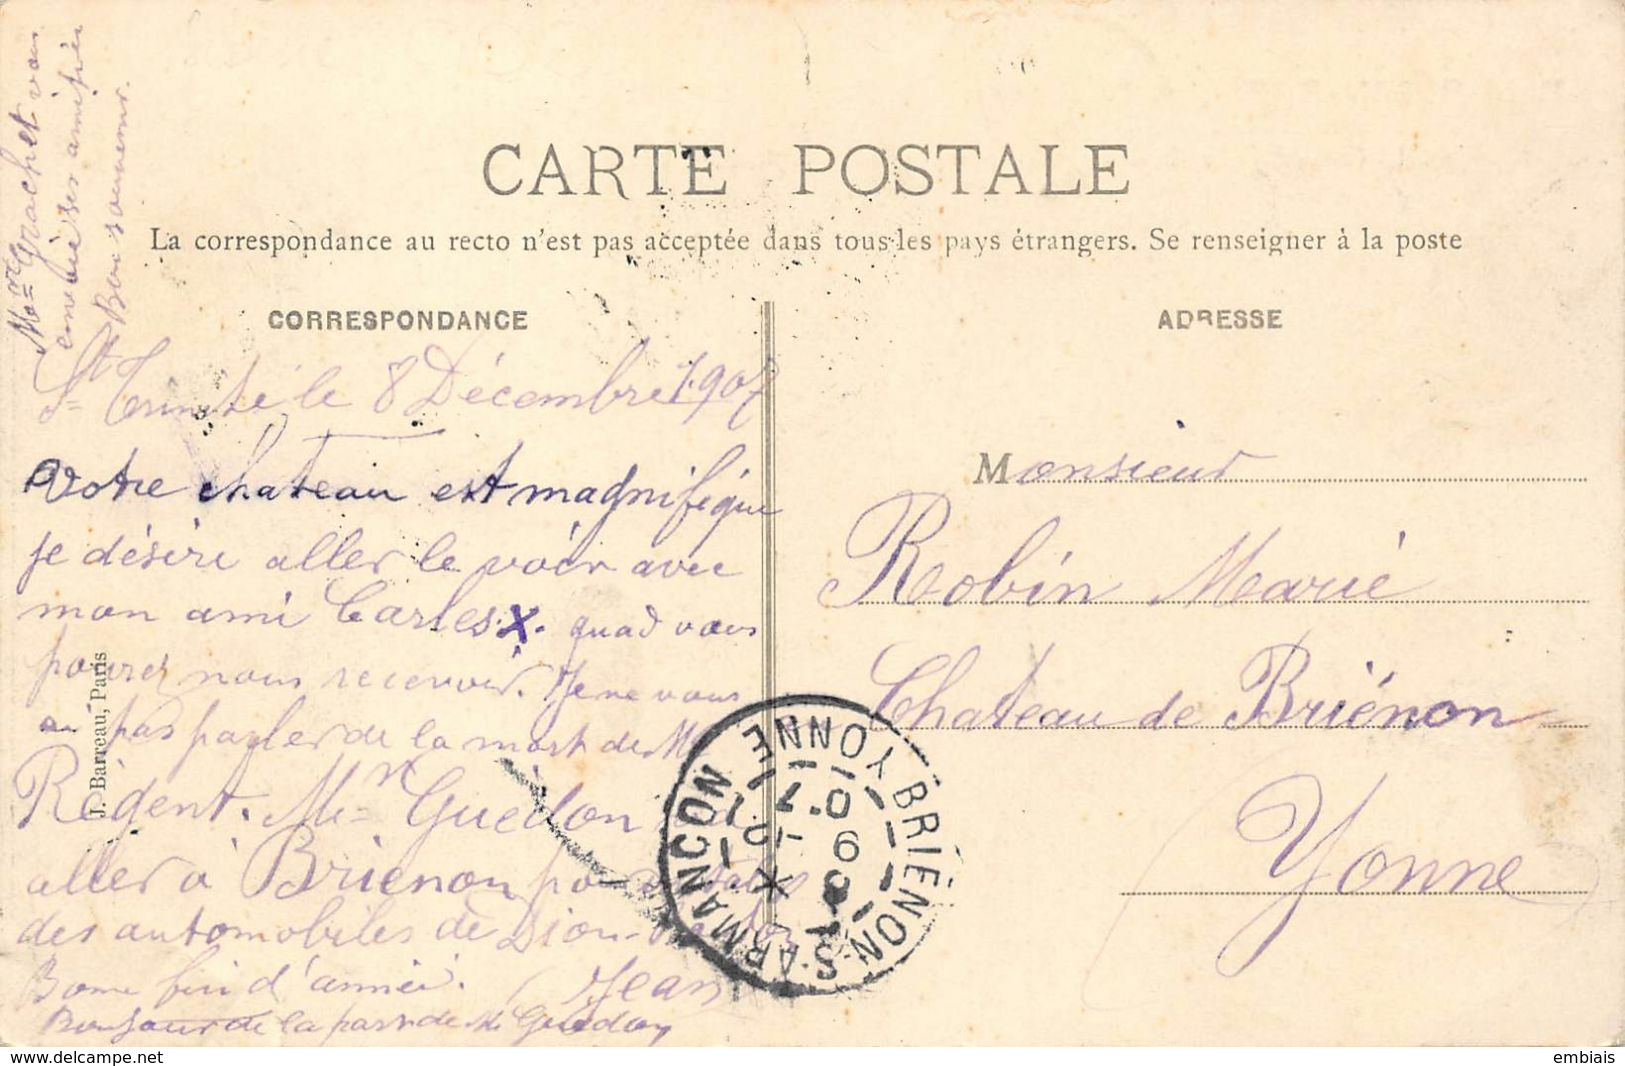 CARTE POSTALE
La correspondance au recto n'est pas acceptée dans tous les pays étrangers. Se renseigner à la poste
CORRESPONDANCE
Grachet vous
envoie ses amitiés
Bon souvenir.
St Trinité le 8 Décembre 1907
Votre chateau est magnifique
je désire aller le voir avec
mon ami Carles. X. quad vous
pourez nous recevoir. Je ne vous
ai pas parler de la mort de M
Régent. Mr Guédon
aller à Brienon
des automobiles de Dion-
Bonne fin d'année. Jean
Bonjour de la part de M Guédon
J. Barreau, Paris
ADRESSE
Monsieur
Robin Marié
Chateau de Briénon
Yonne
BRIENON S. ARMANÇON
YONNE
delcampe.net
embiais